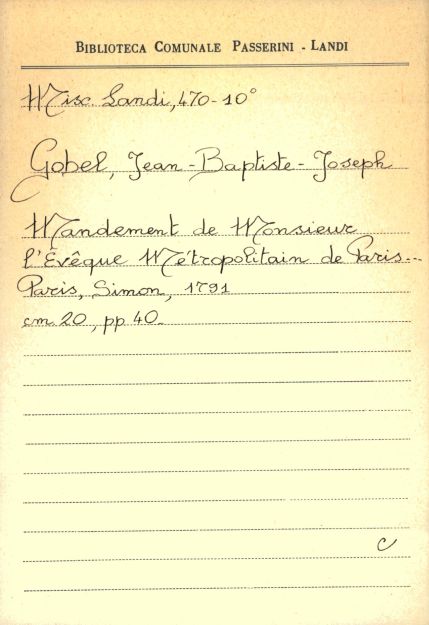 BIBLIOTECA COMUNALE PASSERINI - LANDI
Misc. Landi, 470-10°
Gobel, Jean-Baptiste-Joseph
Mandement de Monsieur
l'Evêque Métropolitain de Paris...
Paris, Simon, 1791
cm 20, pp 40.
c